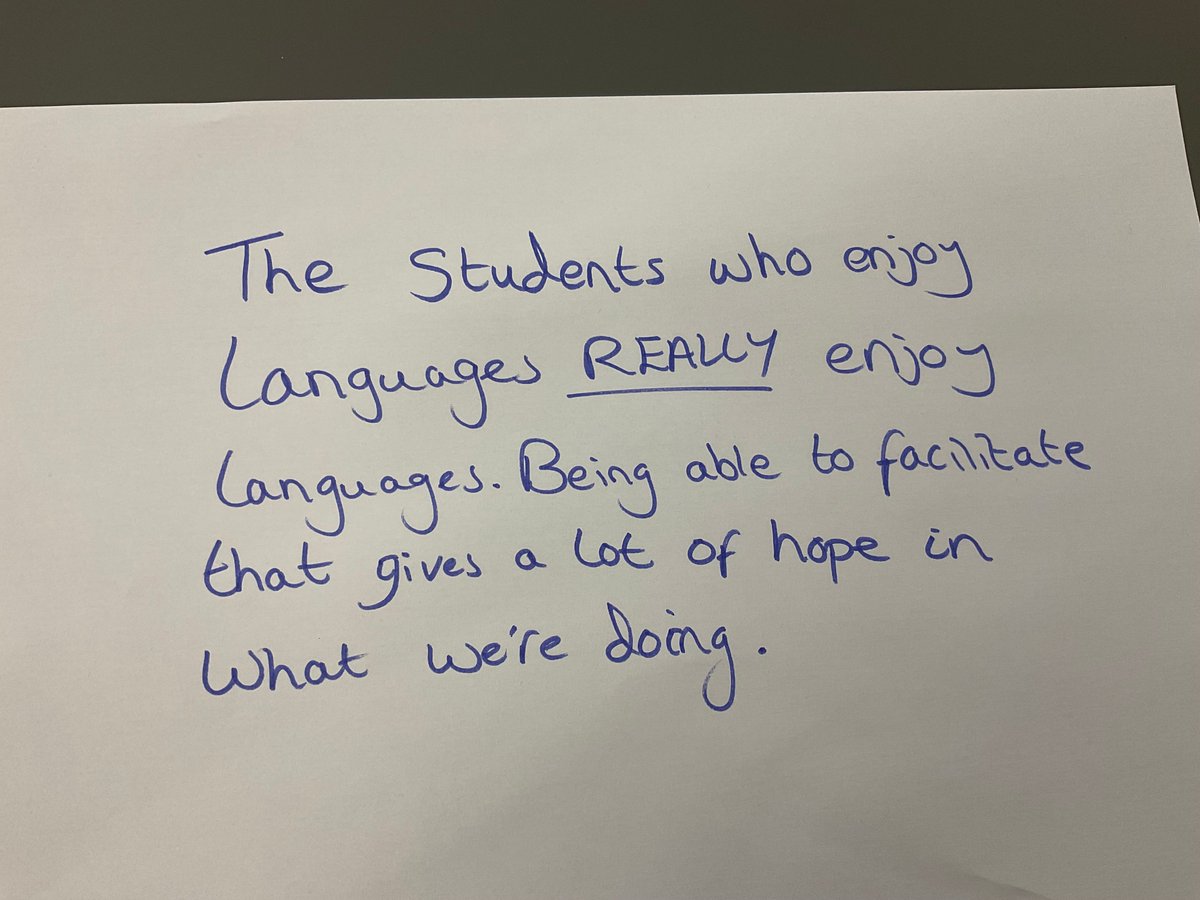 The Students who enjoy
Languages REALLY enjoy
Languages. Being able to facilitate
that gives a lot of hope in
What we're doing.